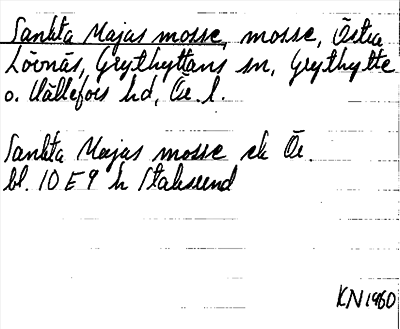 Sankta Majas mosse, mosse, Östra
Lövnäs, Grythyttans sn, Grythytte
o. Hällefors hd, Ör. l.
Sankta Majas mosse ek Ör.
bl. 10 E 9 h
KN 1960